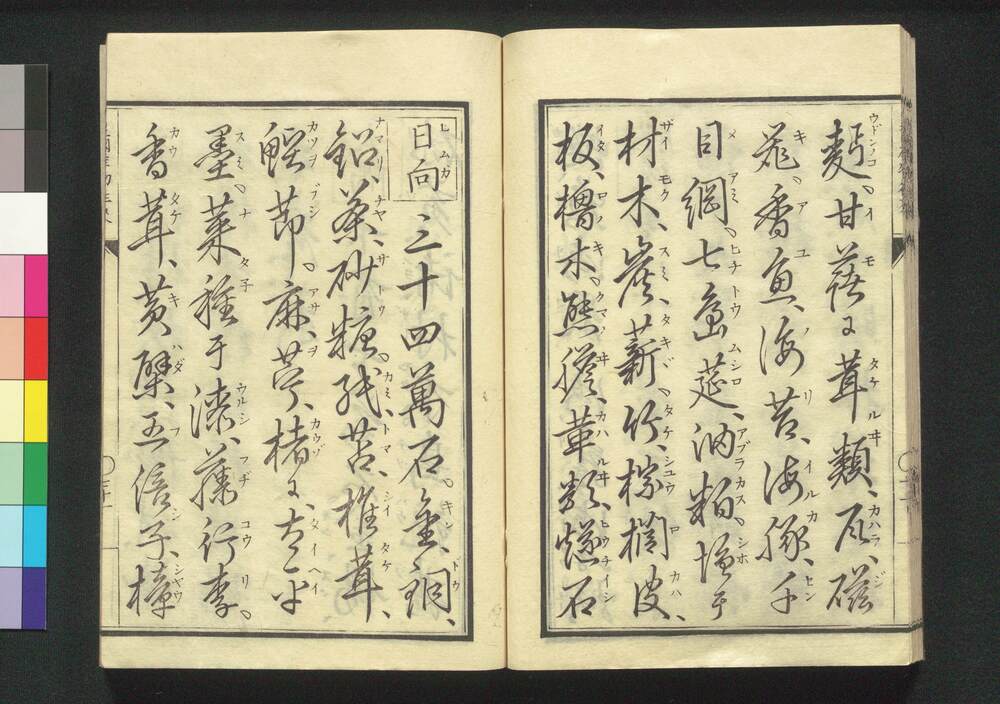 麪、甘藷ニ茸類、瓦、磁
器、香魚、海苔、海豚、干
目網、七島莚、油粕、塩于
材木、炭、薪、竹、棕櫚皮、
板、櫓木、熊膽、革類、燧石
日向 三十四萬石。金、銅、
鉛、茶、砂糖。紙、苫、椎茸、
鰹節。麻、苧、楮ニ、太平
墨、菜種于漆、藤行李。
香茸、黄蘗、五倍子、樟